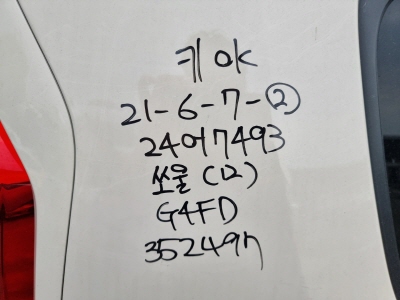 키 OK
21-6-7-②
24어7493
쏘울 (12)
G4FD
352497